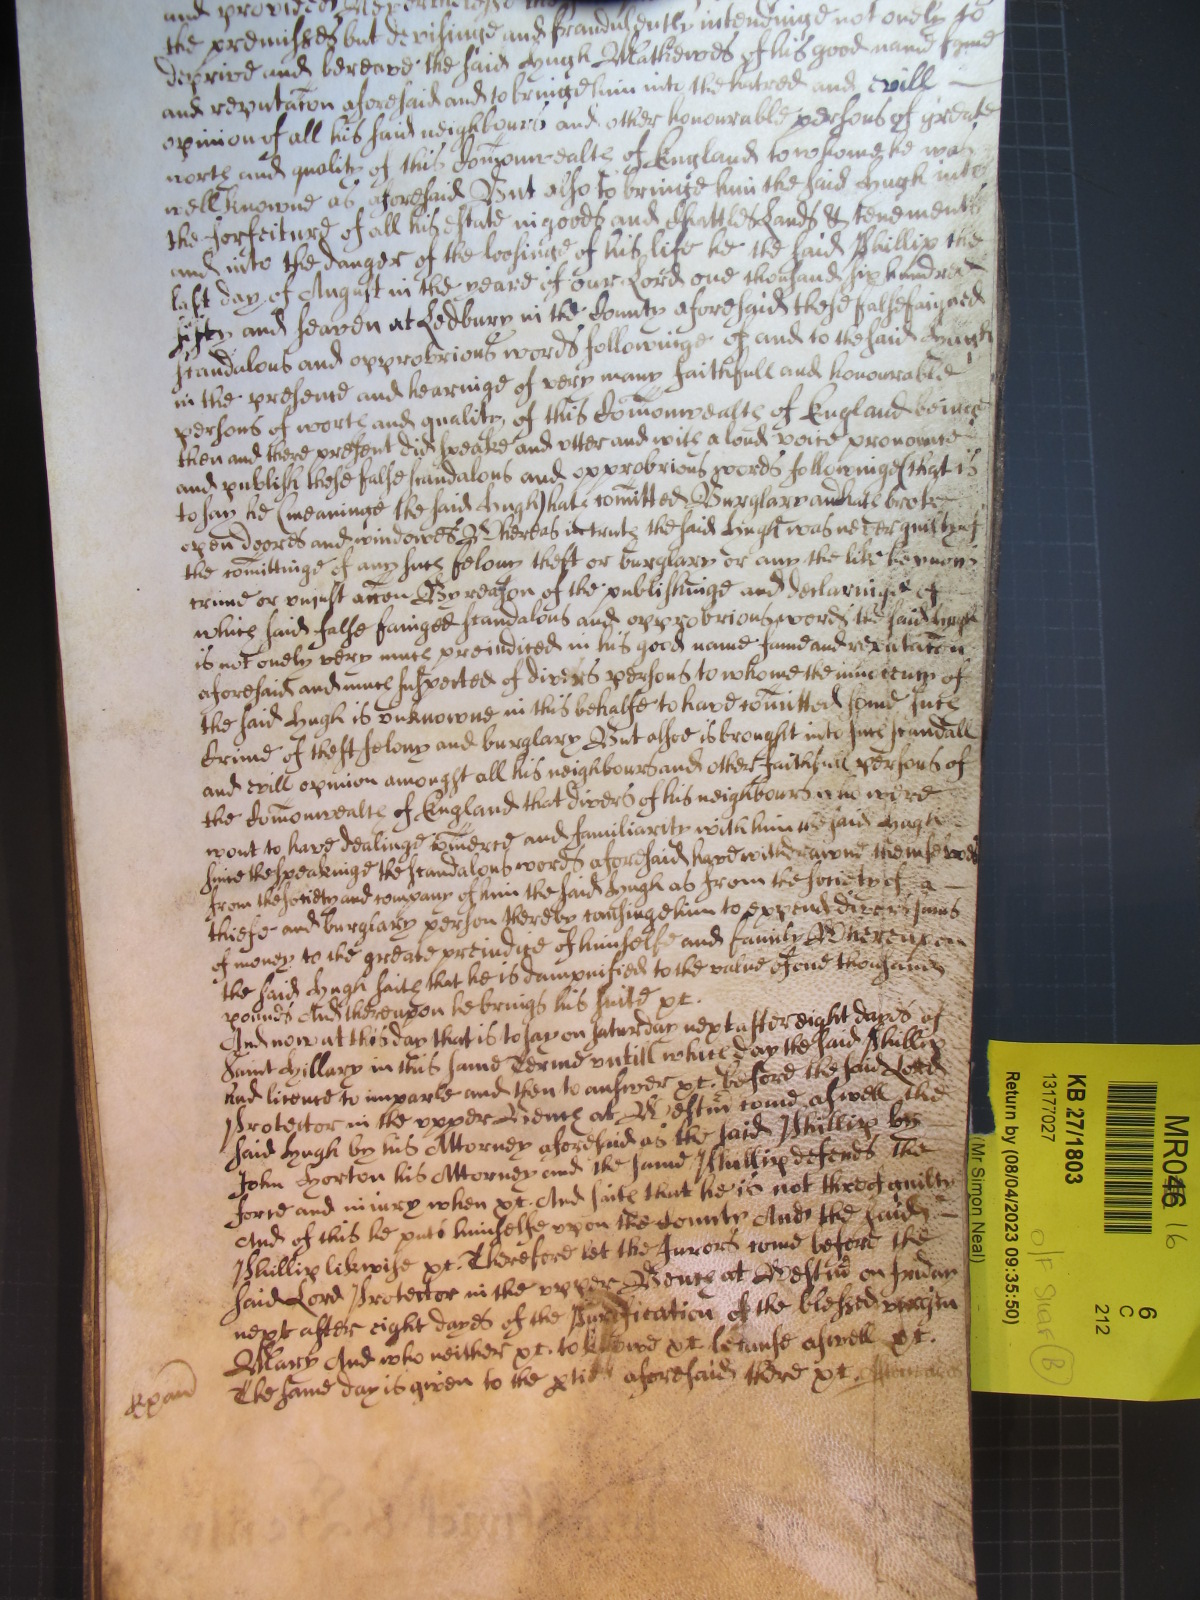 and provided
the premisses but devisinge and fraudulently intendinge not onely to
deprive and bereave the said Hugh Mathewes of his good name fame
and reputacon aforesaid and to bringe him into the hatred and evill
opinion of all his said neighbours and other honourable persons of greate
worth and quality of this Comonwealth of England to whome he was
well knowne as aforesaid But also to bringe him the said Hugh into
the forfeiture of all his estate in goods and Chattles Lands & tenements
and into the danger of the loosinge of his life he the said Phillip the
last day of August in the yeare of our Lord one thousand six hundred
fifty and seaven at Ledbury in the County aforesaid these false faigned
scandalous and opprobrious words followinge of and to the said Hugh
in the presence and hearinge of very many faithfull and honourable
persons of worth and quality of this Comonwealth of England beinge
then and there present did speake and utter and with a loud voice pronounce
and publish these false scandalous and opprobrious words followinge (that is
to say he (meaninge the said Hugh) hath comitted Burglary and hath broke
open doores and windowes Whereas in truth the said Hugh was never guilty of
the comittinge of any such felony theft or burglary or any the like heynous
crime or uniust accon By reason of the publishinge and declaringe of
which said false fainged scandalous and opprobrious words the said Hugh
is not onely very much preiudiced in his good name fame and reputacon
aforesaid and much suspected of divers persons to whome the innocency of
the said Hugh is unknowne in this behalfe to have comitted some such
Crime of theft felony and burglary But alsoe is brought into such scandall
and evill opinion amongst all his neighbours and other faithfull persons of
the Comonwealth of England that divers of his neighbours who were
wont to have dealinge comerce and familiarity with him the said Hugh
since the speakinge the scandalous words aforesaid have withdrawne themselves
from the society and company of him the said Hugh as from the society of a
thiefe and burglary person thereby causinge him to expend divers sums
of money to the greate preiudice of himselfe and family Whereupon
the said Hugh saith that he is dampnified to the value of one thousand
pounds And thereupon he brings his suite &c.
And now at this day that is to say on Saturday next after eight dayes of
Saint Hillary in this same Terme untill which day the said Phillip
had licence to imparle and then to answer &c. before the said Lord
Protector in the upper Bench at Westm̃ come aswell the
said Hugh by his Attorney aforesaid as the said Phillip by
John Horton his Attorney and the same Phillip defends the
force and iniury when &c. And saith that he is not thereof guilty
And of this he puts himselfe upon the County And the said
Phillip likewise &c. Therefore let the Jurors come before the
said Lord Protector in the upper Bench at Westm̃ on Friday
next after eight dayes of the Purification of the blessed virgin
Mary And who neither &c. to knowe &c. because aswell &c.
The same day is given to the pties aforesaid there &c.
MR046 16
6
C
212
KB 27/1803
13177027
Return by (08/04/2023 09:35:50)
(Mr Simon Neal)
B